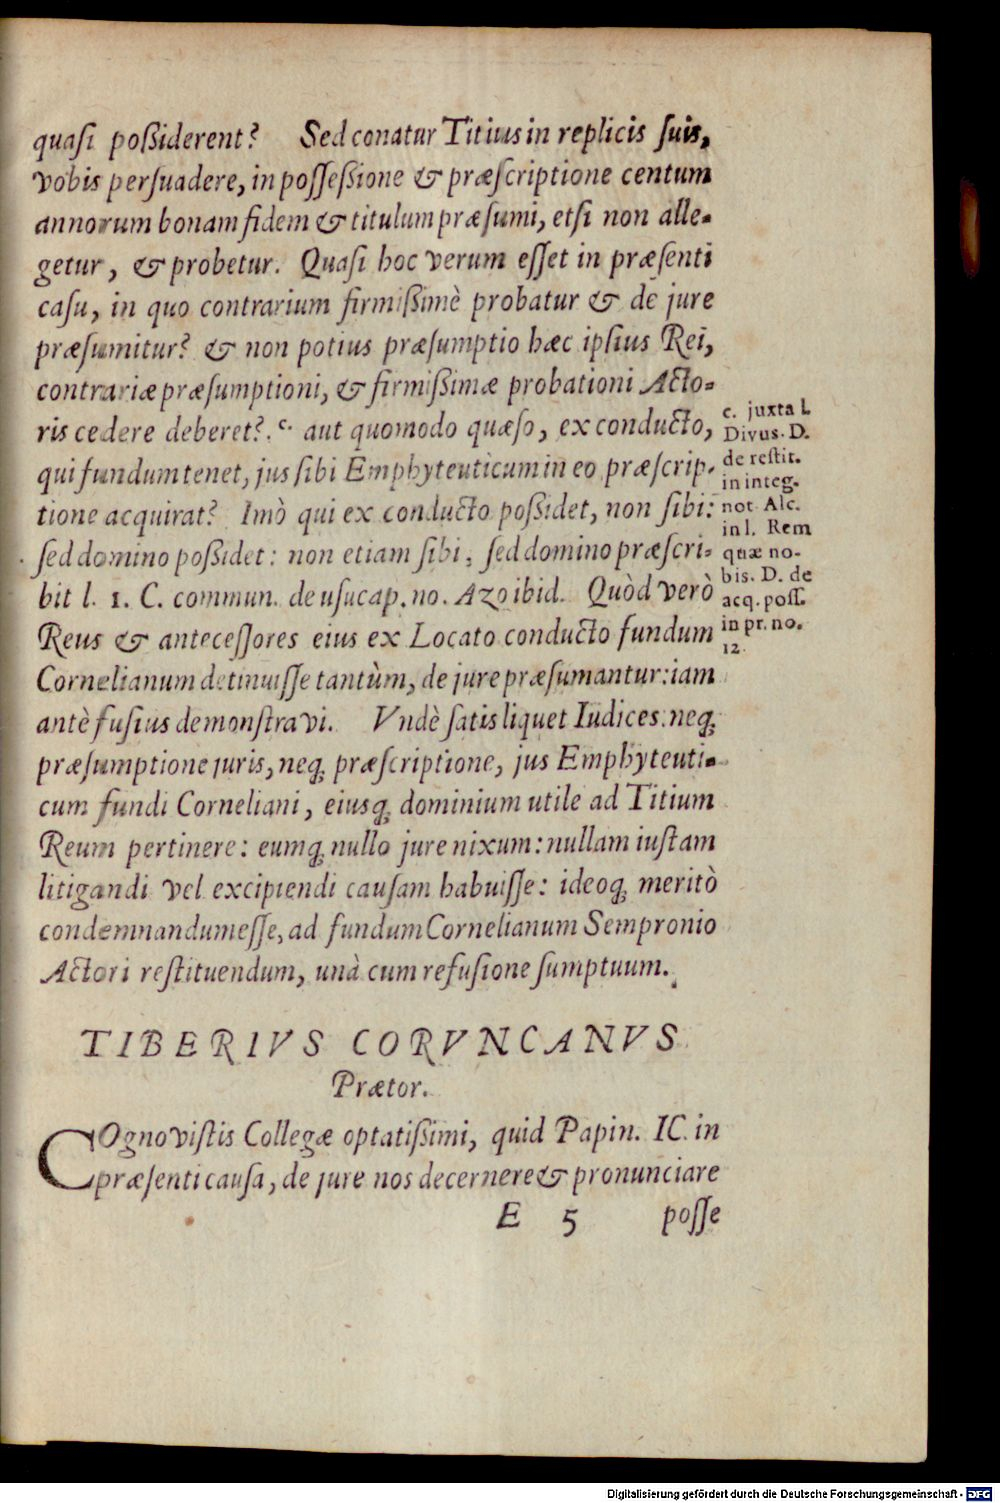 quasi poßiderent? Sed conatur Titius in replicis suis,
vobis persuadere, in posseßione & præscriptione centum
annorum bonam fidem & titulum præsumi, etsi non alle-
getur, & probetur. Quasi hoc verum esset in præsenti
casu, in quo contrarium firmißimè probatur & de jure
præsumitur? & non potius præsumptio hæc ipsius Rei,
contrariæ præsumptioni, & firmißimæ probationi Acto-
ris cedere deberet?. c. aut quomodo quæso, ex conducto,
qui fundum tenet, jus sibi Emphyteuticum in eo præscrip-
tione acquirat? Imò qui ex conducto poßidet, non sibi:
sed domino poßidet: non etiam sibi, sed domino præscri-
bit l. 1. C. commun. de usucap. no. Azo ibid. Quòd verò
Reus & antecessores eius ex Locato conducto fundum
Cornelianum detinuisse tantùm, de jure præsumantur: iam
antè fusius demonstravi. Vndè satis liquet Iudices: neq;
præsumptione juris, neq; præscriptione, jus Emphyteuti-
cum fundi Corneliani, eiusq; dominium utile ad Titium
Reum pertinere: eumq; nullo jure nixum: nullam iustam
litigandi vel excipiendi causam habuisse: ideoq; meritò
condemnandum esse, ad fundum Cornelianum Sempronio
Actori restituendum, unà cum refusione sumptuum.
c. juxta l.
Divus. D.
de restit.
in integ.
not Alc.
in l. Rem
quæ no-
bis. D. de
acq. poss.
in pr. no.
12.
TIBERIVS CORVNCANVS
Prætor.
COgnovistis Collegæ optatißimi, quid Papin. IC. in
præsenti causa, de jure nos decernere & pronunciare
E 5 posse
Digitalisierung gefördert durch die Deutsche Forschungsgemeinschaft - DFG